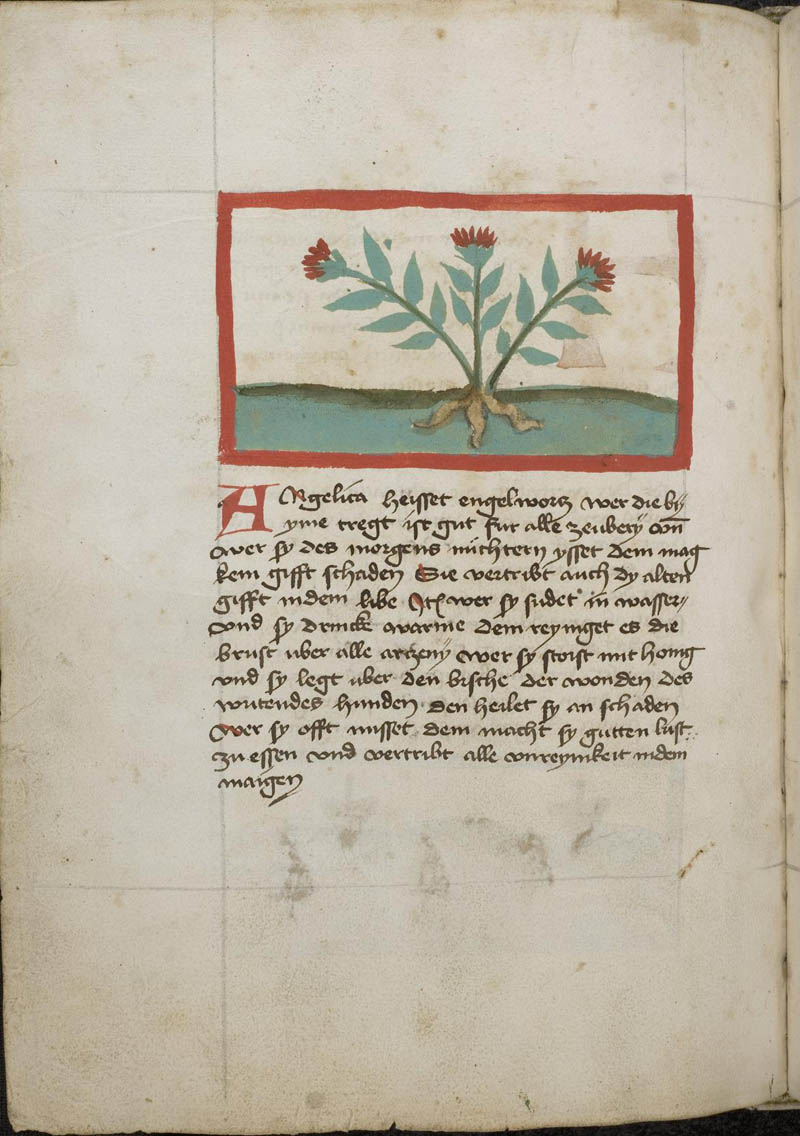 ANgelica heisset engelworcz wer die bÿ
yme tregt ist gut fur alle zeubery vn̄
wer sy des morgens nüchtern ysset dem mag
kein gifft schaden Sie vertribt auch dy alten
gifft indem libe Itꝫ wer sy sudet in wasser
vnd sy drincke warme dem reyniget es die
brust uber alle arczenÿ wer sy stoist mit honig
vnd sy legt uber den bische der wonden des
wutendes hunden den heilet sy an schaden
wer sy offt nusset dem macht sy gutten lust
zu essen vnd vertribt alle vnreynikeit indem
maigen